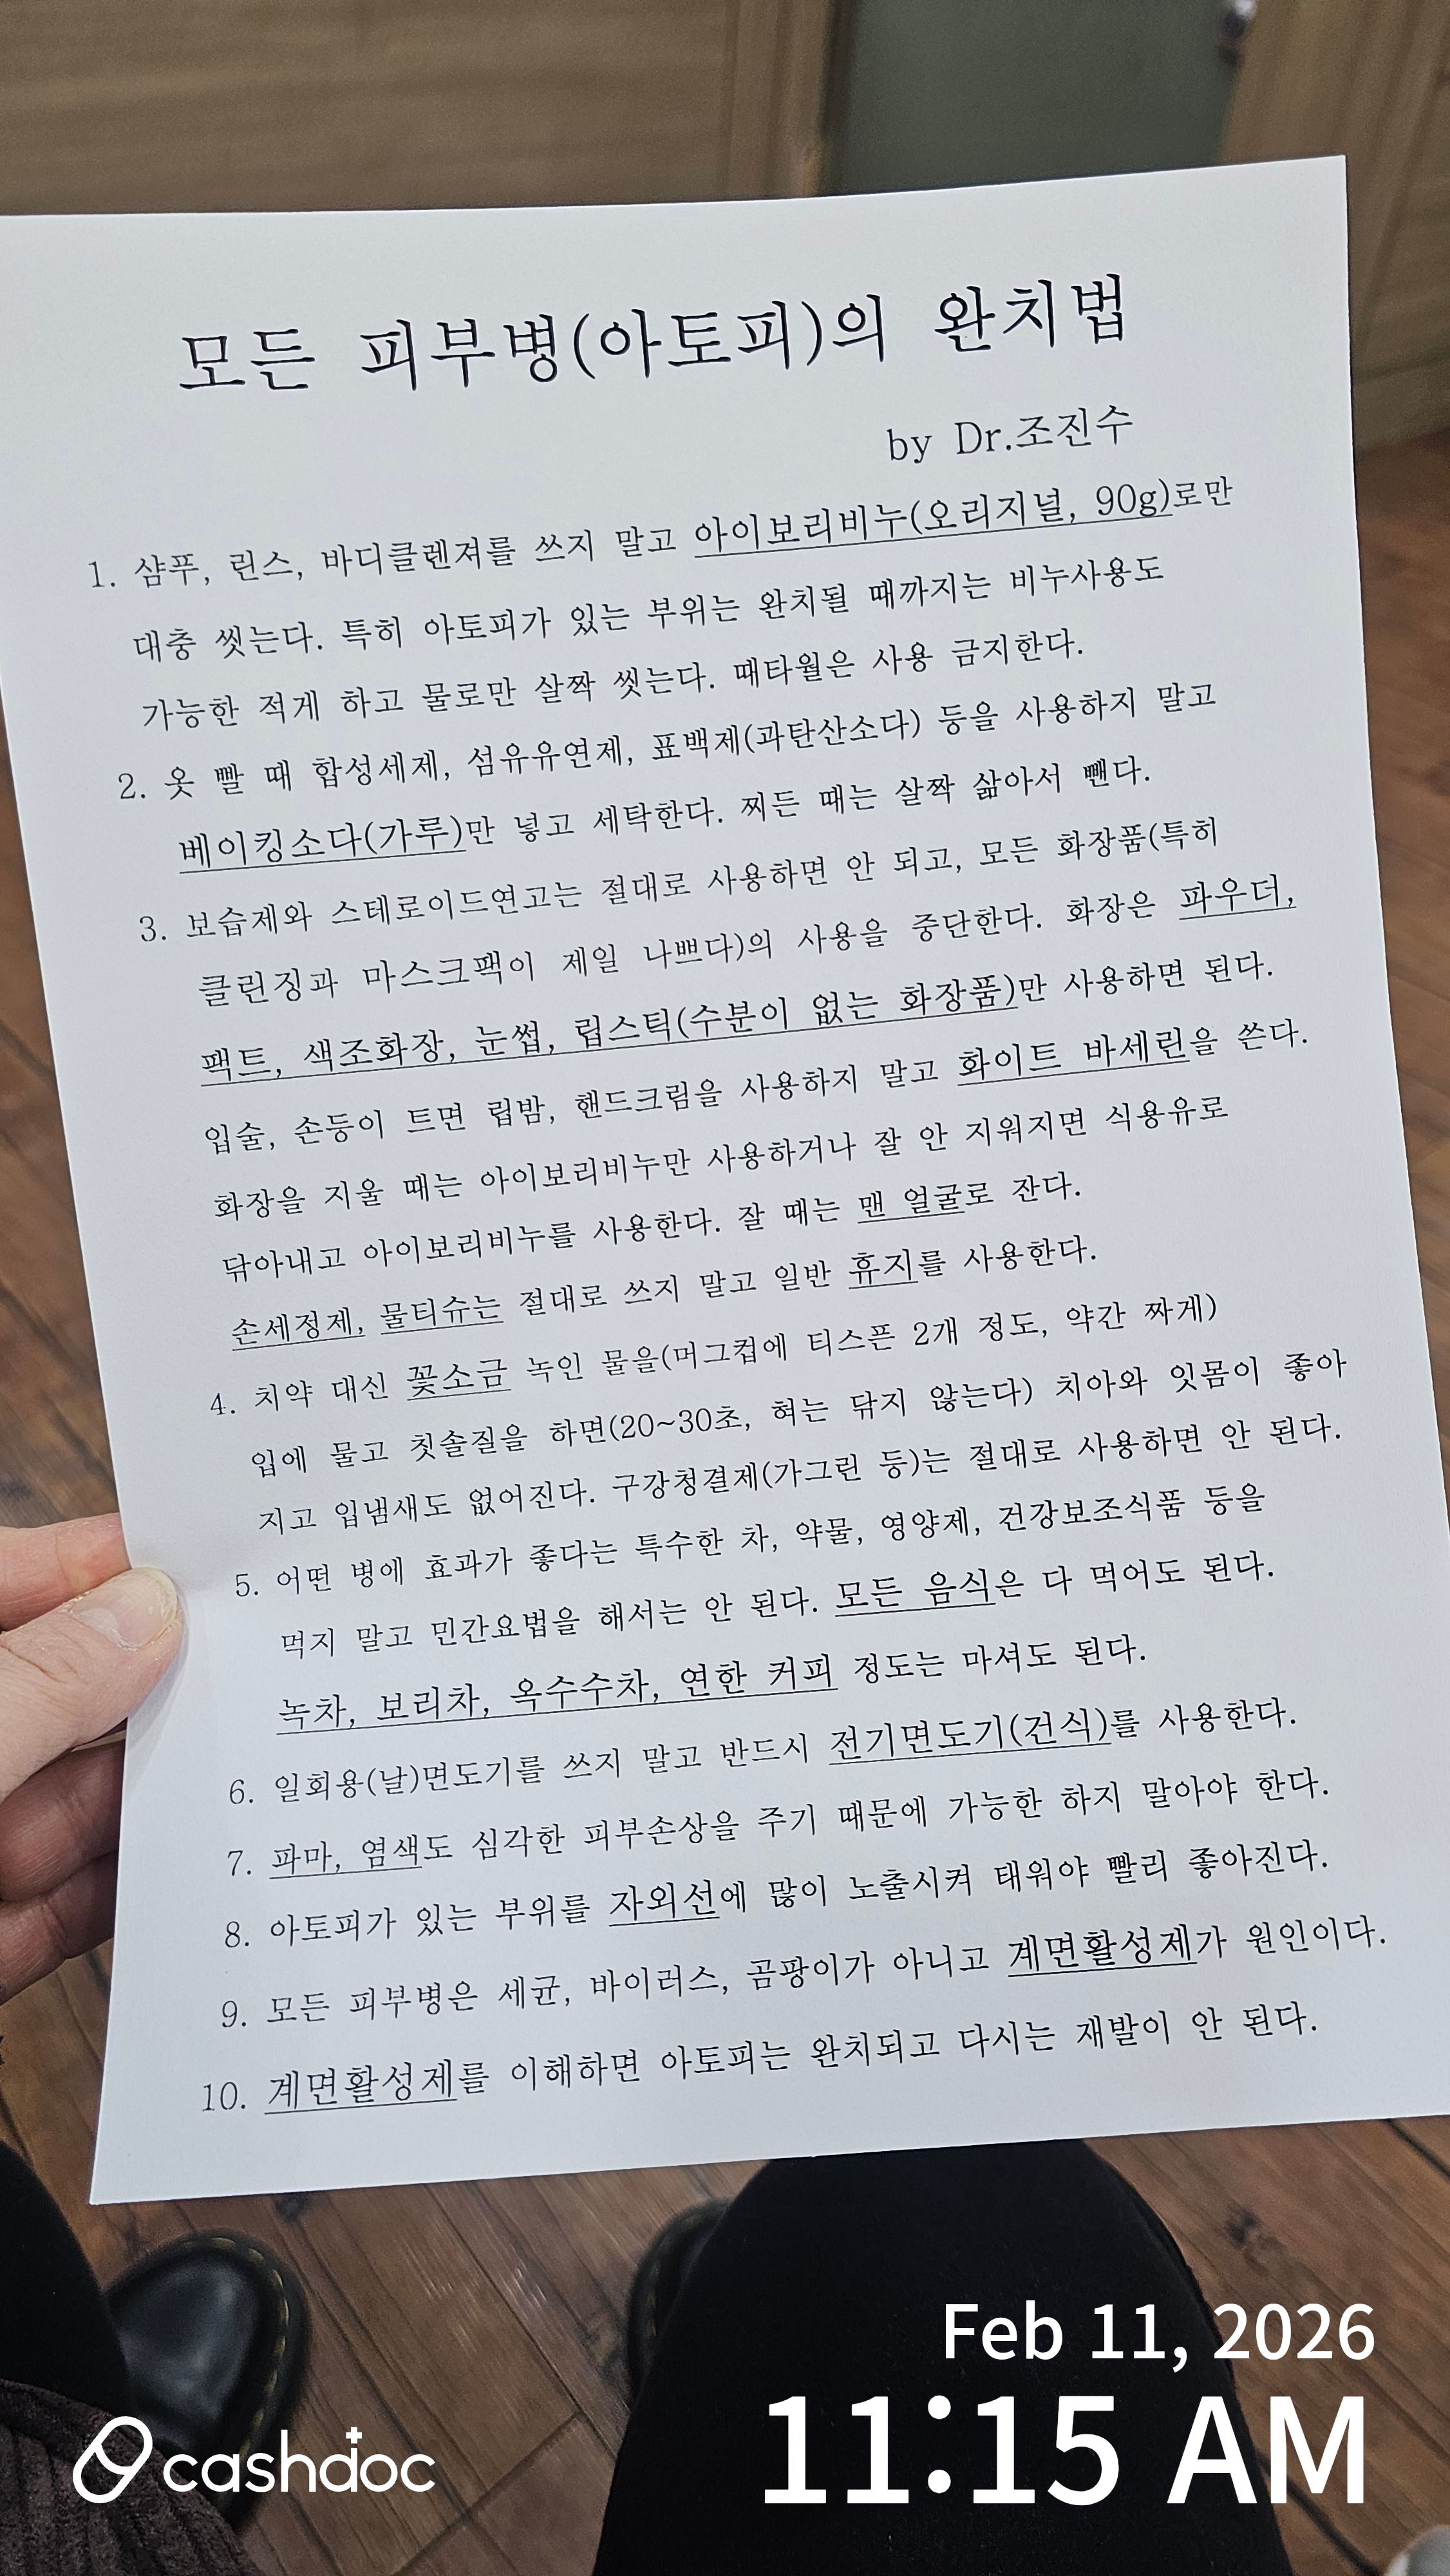 모든 피부병(아토피)의 완치법
by Dr.조진수
1. 샴푸, 린스, 바디클렌져를 쓰지 말고 아이보리비누(오리지널, 90g)로만
대충 씻는다. 특히 아토피가 있는 부위는 완치될 때까지는 비누사용도
가능한 적게 하고 물로만 살짝 씻는다. 때타월은 사용 금지한다.
2. 옷 빨 때 합성세제, 섬유유연제, 표백제(과탄산소다) 등을 사용하지 말고
베이킹소다(가루)만 넣고 세탁한다. 찌든 때는 살짝 삶아서 뺀다.
3. 보습제와 스테로이드연고는 절대로 사용하면 안 되고, 모든 화장품(특히
클린징과 마스크팩이 제일 나쁘다)의 사용을 중단한다. 화장은 파우더,
팩트, 색조화장, 눈썹, 립스틱(수분이 없는 화장품)만 사용하면 된다.
입술, 손등이 트면 립밤, 핸드크림을 사용하지 말고 화이트 바세린을 쓴다.
화장을 지울 때는 아이보리비누만 사용하거나 잘 안 지워지면 식용유로
닦아내고 아이보리비누를 사용한다. 잘 때는 맨 얼굴로 잔다.
손세정제, 물티슈는 절대로 쓰지 말고 일반 휴지를 사용한다.
4. 치약 대신 꽃소금 녹인 물을(머그컵에 티스픈 2개 정도, 약간 짜게)
입에 물고 칫솔질을 하면(20~30초, 혀는 닦지 않는다) 치아와 잇몸이 좋아
지고 입냄새도 없어진다. 구강청결제(가그린 등)는 절대로 사용하면 안 된다.
5. 어떤 병에 효과가 좋다는 특수한 차, 약물, 영양제, 건강보조식품 등을
먹지 말고 민간요법을 해서는 안 된다. 모든 음식은 다 먹어도 된다.
녹차, 보리차, 옥수수차, 연한 커피 정도는 마셔도 된다.
6. 일회용(날)면도기를 쓰지 말고 반드시 전기면도기(건식)를 사용한다.
7. 파마, 염색도 심각한 피부손상을 주기 때문에 가능한 하지 말아야 한다.
8. 아토피가 있는 부위를 자외선에 많이 노출시켜 태워야 빨리 좋아진다.
9. 모든 피부병은 세균, 바이러스, 곰팡이가 아니고 계면활성제가 원인이다.
10. 계면활성제를 이해하면 아토피는 완치되고 다시는 재발이 안 된다.
Feb 11, 2026
11:15 AM
cashdoc